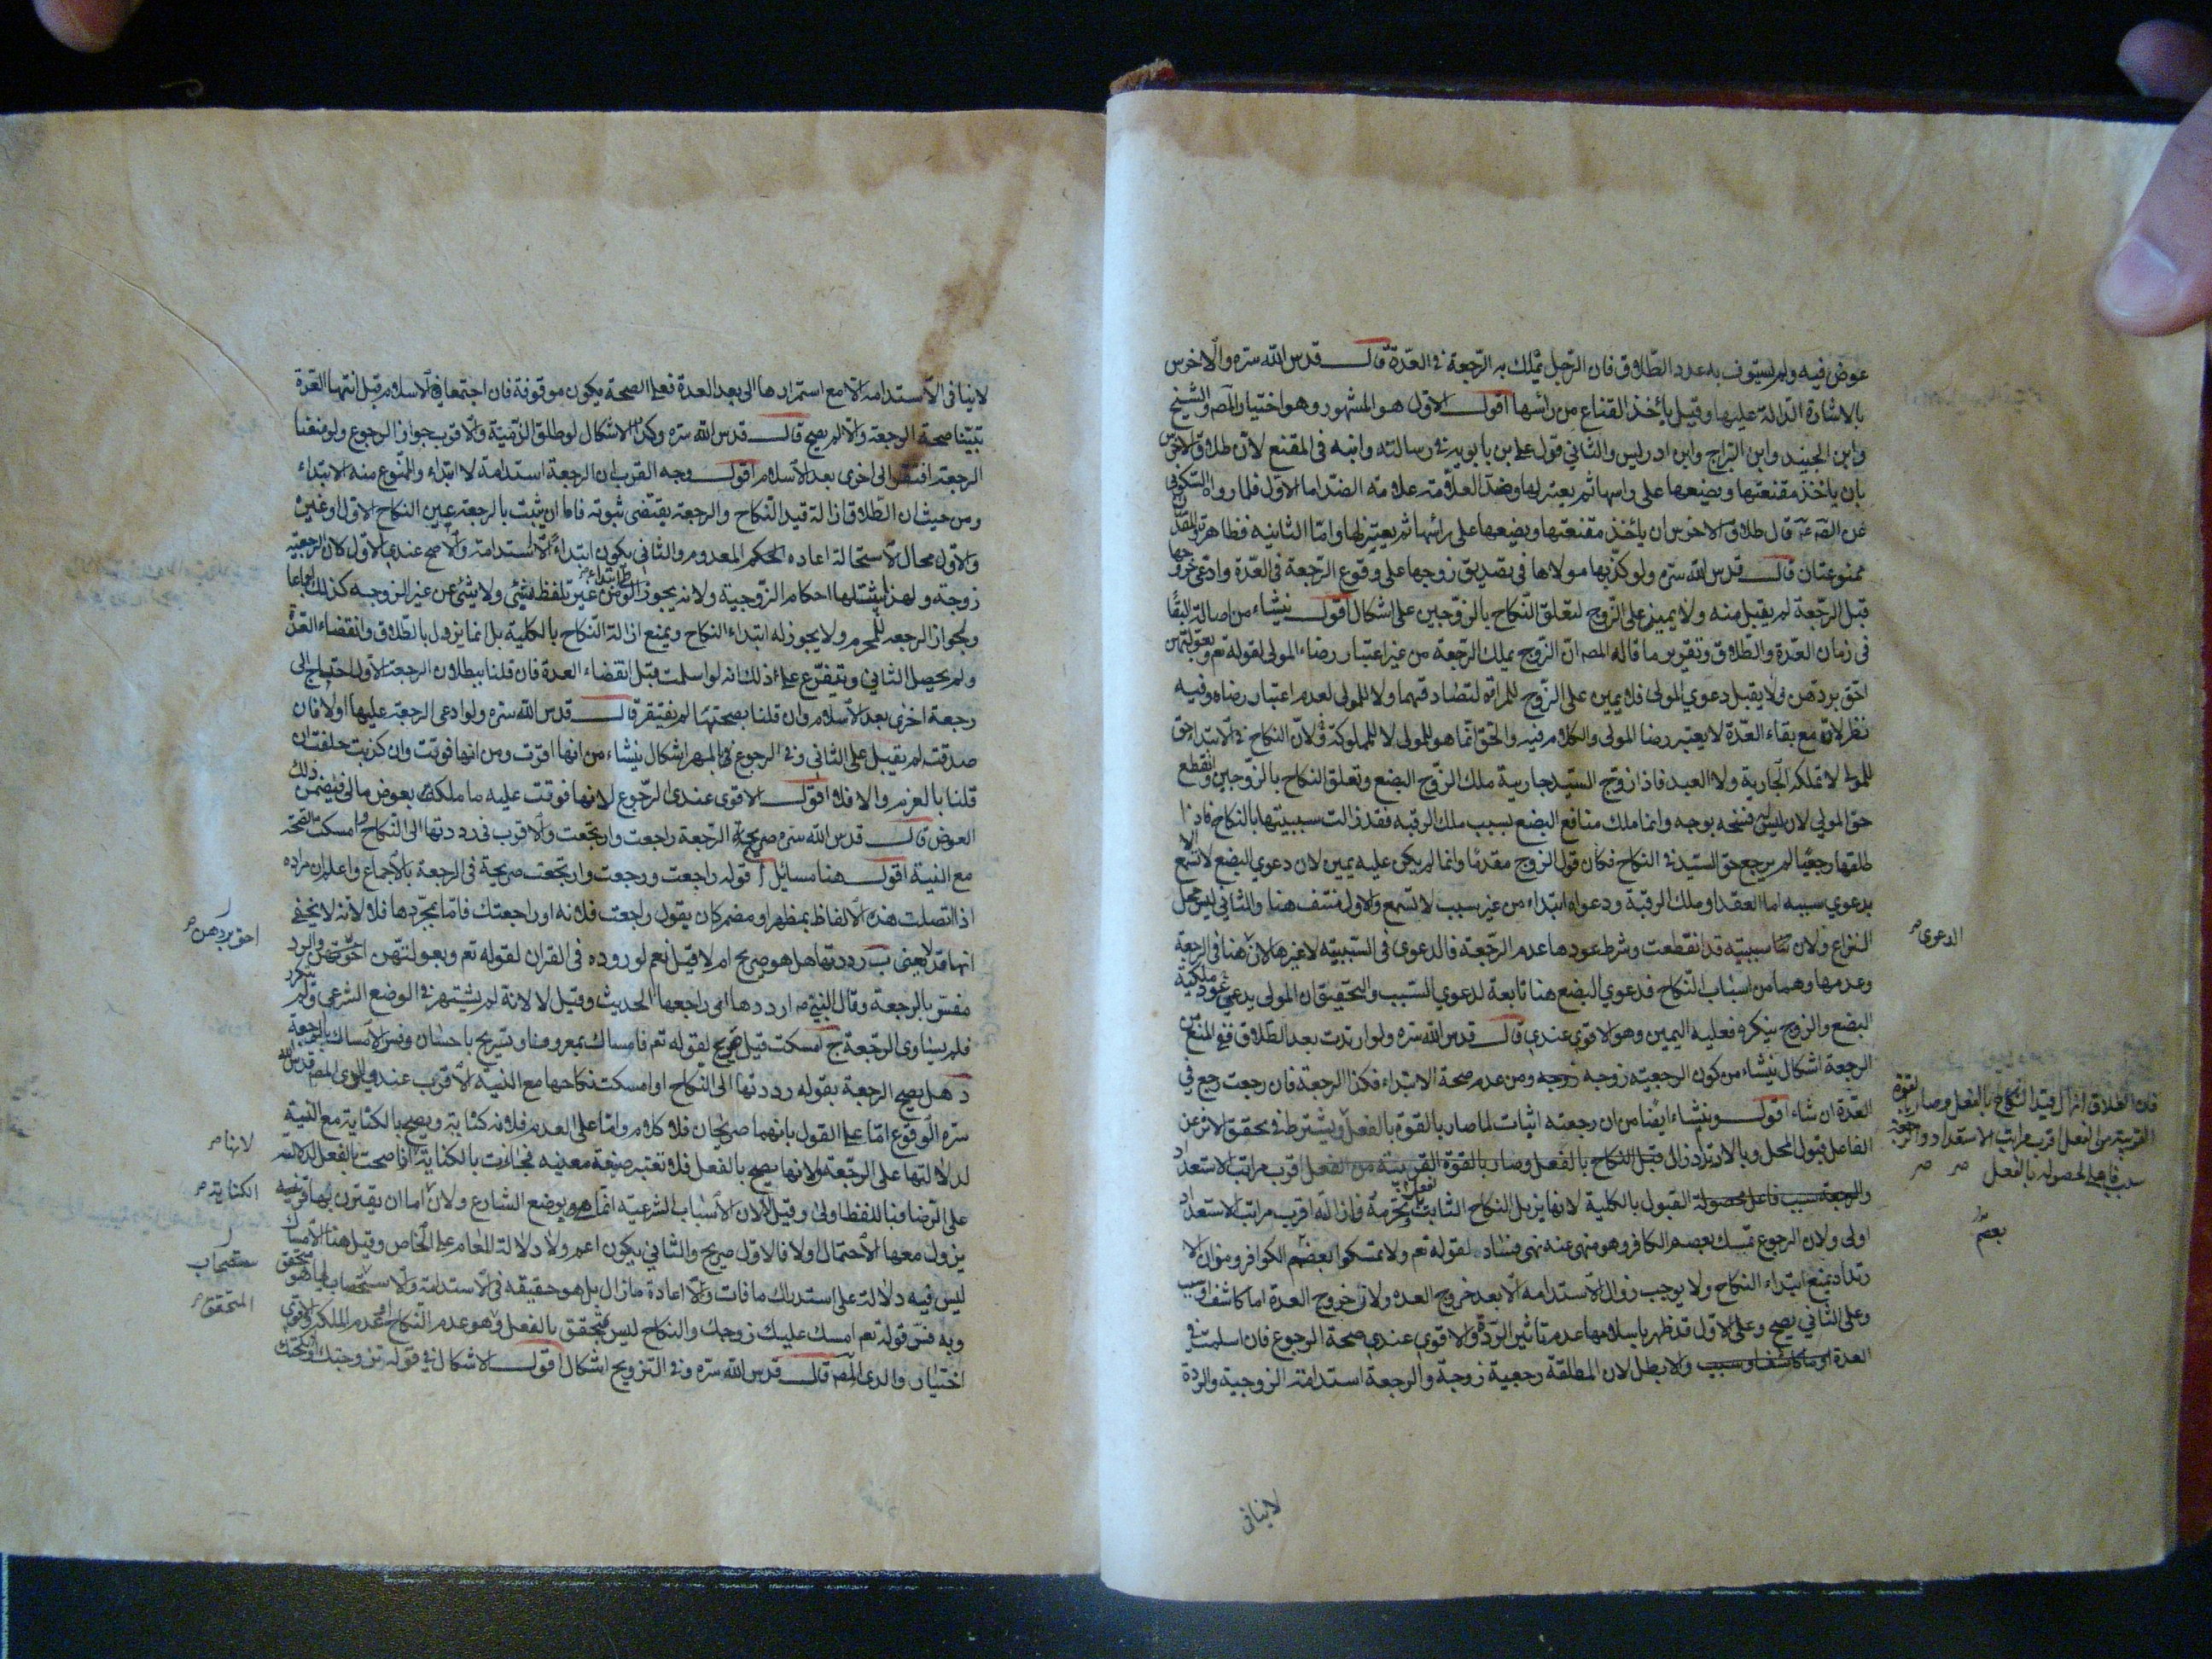 عوض فيه ولم يستوف به عدد الطلاق فان الرجل يملك به الرجعة في العدة قال قدس الله سره والاخرس
بالاشارة الدالة عليها وقيل يأخذ القناع من رأسها اقول الاول هو المشهور وهو اختيار المصه والشيخ
وابن الجنيد وابن البراج وابن ادريس والثاني قول علي بن بابويه في رسالته وابنه في المقنع لان طلاق الاخرس
بان يأخذ مقنعتها ويضعها على راسها ثم يعتزلها وضد العلامة علامة الضد اما الاول فلما رواه السكوني
عن الصه عه قال طلاق الاخرس ان يأخذ مقنعتها ويضعها على رأسها ثم يعتزلها واما الثانيه فظاهرة
ممنوعتان قال قدس الله سره ولو كذبها مولاها في تصديق زوجها على وقوع الرجعة في العدة وادعى خروجها
قبل الرجعة لم يقبل منه ولا يمين على الزوج لتعلق النكاح بالزوجين على اشكال اقول ينشاء من اصالة البقاء
في زمان العدة والطلاق وتقرير ما قاله المصه ان الزوج يملك الرجعة من غير اعتبار رضاء المولى لقوله تعه وبعولتهن
احق بردهن ولا يقبل دعوي المولى فلا يمين على الزوج للمراة لتصادقهما ولا للمولى لعدم اعتبار رضاه وفيه
نظر لانه مع بقاء العدة لا يعتبر رضا المولى والكلام فيه والحق انما هو للمولى لا للمملوكة ولان النكاح في الابتداء حق
للمولى لا تملكه الجارية ولا العبد فاذا زوج السيد جارية ملك الزوج البضع وتعلق النكاح بالزوجين وانقطع
حق المولى لان ليس له فسخه بوجه وانما ملك منافع البضع بسبب ملك الرقبه فقد زالت سببيتها بالنكاح فاذا
طلقها رجعيا لم يرجع حق السيد في النكاح فكان قول الزوج مقدما وانما لم يكن عليه يمين لان دعوي البضع لا تسمع الا
بدعوي سببه اما العقد او ملك الرقبة ودعواه ابتداء من غير سبب لا تسمع والاول منتف هنا والثاني ليس محل
النزاع ولان سببيته قد انقطعت وشرط عودها عدم الرجعة فالدعوى في السببيه لا غيرها لان هنا في الرجعة
وعدمها وهما من اسباب النكاح فدعوي البضع هنا تابعة لدعوي السبب والتحقيق ان المولى يدعي عود ملكية
البضع والزوج ينكره فعليه اليمين وهو الاقوى عندي قال قدس الله سره ولو ارتدت بعد الطلاق ففي المنع من
الرجعة اشكال ينشاء من كون الرجعيه زوجه ومن عدم صحة الابتداء فكذا الرجعة فان رجعت رجع في
العدة ان شاء اقول وينشاء ايضا من ان رجعته اثبات لما صار بالقوة بالفعل ويشترط في تحقق الاثر عن
الفاعل قبول المحل وبالارتداد زال قبل النكاح بالفعل وصار بالقوة القريبة من الفعل اقرب مراتب الاستعداد
والرجعة سبب فاعل محصولة القبول بالكلية لانها يزيل النكاح الثابت بالفعل فازالة اقرب مراتب الاستعداد
اولى ولان الرجوع تمسك بعصم الكافر وهو منهى عنه نهى فساد لقوله تعه ولا تمسكوا بعصم الكوافر ومن ان الا
رتداد يمنع ابتداء النكاح ولا يوجب زوال الاستدامه الا بعد خروج العده ولان خروج العدة اما كاشف او سبب
وعلى الثاني يصح وعلى الاول قد ظهر باسلامها عدم تأثير الردة والاقوى عندي صحة الرجوع فان اسلمت في
العدة او ما كاشفا وسبب والا بطل لان المطلقة رجعية زوجة والرجعة استدامة الزوجية والردة
الدعوى
فان الطلاق ازال قيد النكاح بالفعل وصار بالقوة
القريبة من الفعل اقرب مراتب الاستعداد والرجعة
سبب فاعل لحصوله بالفعل
بعصم
لاينافي
لاينافى الاستدامة الا مع استمرارها الى بعد العدة فعلى الصحة يكون موقوفة فان اجتمعا في الاسلام قبل انتهاء العدة
تبينا صحة الرجعة والا لم يصح قال قدس الله سره وكذا الاشكال لو طلق الذمية والاقرب جواز الرجوع ولو منعنا
الرجعة افتقر الى اخرى بعد الاسلام اقول وجه القرب ان الرجعة استدامة لا ابتداء والممنوع منه الابتداء
ومن حيث ان الطلاق ازالة قيد النكاح والرجعة يقتضى ثبوته فاما ان يثبت بالرجعة عين النكاح الاول او غيره
والاول محال لاستحالة اعاده الحكم المعدوم والثاني يكون ابتداء لا استدامة والاصح عندي الاول كان الرجعيه
زوجة ولهذا يثبت لها احكام الزوجية ولانه يجوز الوطي ابتداء من غير تلفظ بشئ ولا شئ من غير الزوجه كذلك اجماعا
ويجوز الرجعه للمحرم ولا يجوز له ابتداء النكاح ويمنع ازالة النكاح بالكلية بل انما يزول بالطلاق وانقضاء العدة
ولم يحصل الثاني ويتفرع على ذلك انه لو اسلمت قبل انقضاء العدة فان قلنا ببطلان الرجعة الاولى احتاج الى
رجعة اخرى بعد الاسلام وان قلنا بصحتها لم يفتقر قال قدس الله سره ولو ادعى الرجعة عليها اولا فان
صدقت لم يقبل على الثاني وفي الرجوع بالمهر اشكال ينشاء من انها اقرت ومن انها فوتت وان كذبت حلفت ان
قلنا بالغرم والا فلا اقول الاقوى عندي الرجوع لانها فوتت عليه ما ملكه بعوض مالى فيضمن ذلك
العوض قال قدس الله سره صريح الرجعة راجعت وارتجعت والاقرب في رددتها الى النكاح وامسكت الصحة
مع النية اقول هنا مسائل أ قوله راجعت ورجعت وارتجعت صريحة في الرجعة بالاجماع واعلم ان مراده
اذا اتصلت هذه الالفاظ بمظهر او مضمر كان يقول راجعت فلانه او راجعتك فاما بمجردها فلا ولانه لا يخفى
انها قد لا يعنى ب رددتها هل هو صريح ام لا قيل نعم لوروده في القران لقوله تعه وبعولتهن احق بردهن والرد
مفسر بالرجعة وقال النبي صه ارددها اى راجعها الحديث وقيل لا لانه لم يشتهر في الوضع الشرعى ولم يتكرر
فلم يساوى الرجعة ج امسكت قيل صريح لقوله تعه فامساك بمعروف او تسريح باحسان وفسر الامساك بالرجعة
د هل يصح الرجعة بقوله رددتها الى النكاح او امسكت نكاحها مع النية الاقرب عند والدى المصه قدس الله
سره الوقوع اما على القول بانهما صريحان فلا كلام واما على العدم فلانه كناية ويصح بالكناية مع النية
لدلالتها على الرجعة ولانها يصح بالفعل فلا تعتبر صيغة معينه فجازت بالكناية انما صحت بالفعل لدلالته
على الرضا فباللفظ اولى وقيل لا لان الاسباب الشرعيه انما هو بوضع الشارع ولان اما ان يقترن بها قرينه
يزول معها الاحتمال اولا فالاول صريح والثاني يكون اعم ولا دلالة للعام على الخاص وقيل هنا الامساك
ليس فيه دلالة على استدراك ما فات ولا اعادة ما زال بل هو حقيقه في الاستدامة والاستصحاب لما هو متحقق
وبه فسر قوله تعه امسك عليك زوجك والنكاح ليس بمتحقق بالفعل وهو عدم النكاح
اختيار والدى المصه قال قدس الله سره وفي التزويج اشكال اقول الاشكال في قوله تزوجتك او نكحتك
احق بردهن
لانها
الكناية
ستصحاب
المتحقق